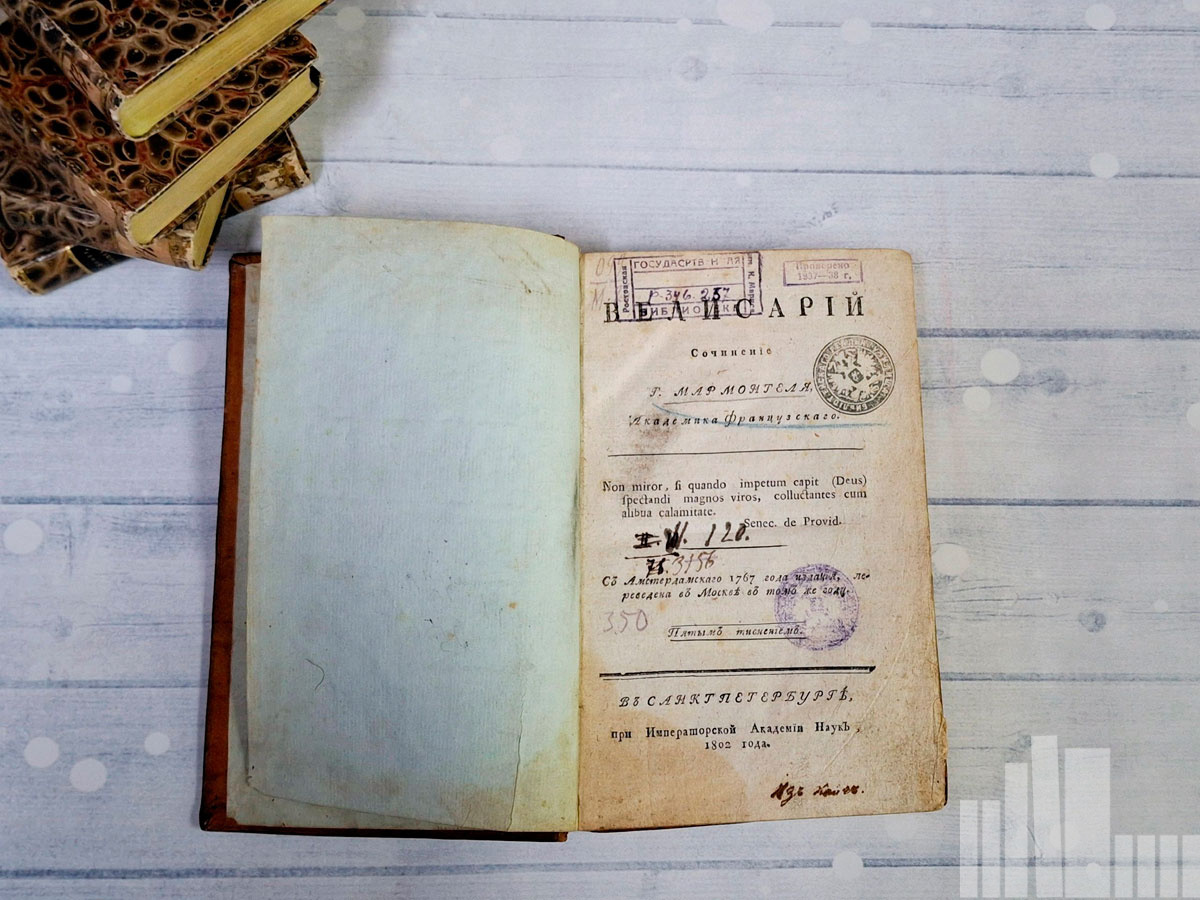 ГОСУДАРСТВ Н АЯ
Ростовская
Р-346.257
БИБЛИОТЕКА
Проверено
1937—38 г.
ВЕЛИСАРІЙ
Сочиненіе
Г. МАРМОНТЕЛЯ,
Академика Французскаго.
Non miror, ſi quando impetum capit (Deus)
ſpectandi magnos viros, colluctantes cum
aliqua calamitate.
Senec. de Provid.
120.
75.3156
Съ Амстердамскаго 1767 года изданія, пе-
реведена въ Москвѣ въ томъ же году.
350
Пятымъ тисненіемъ.
ВЪ САНКТПЕТЕРБУРГѢ,
при Императорской Академіи Наукъ,
1802 года.